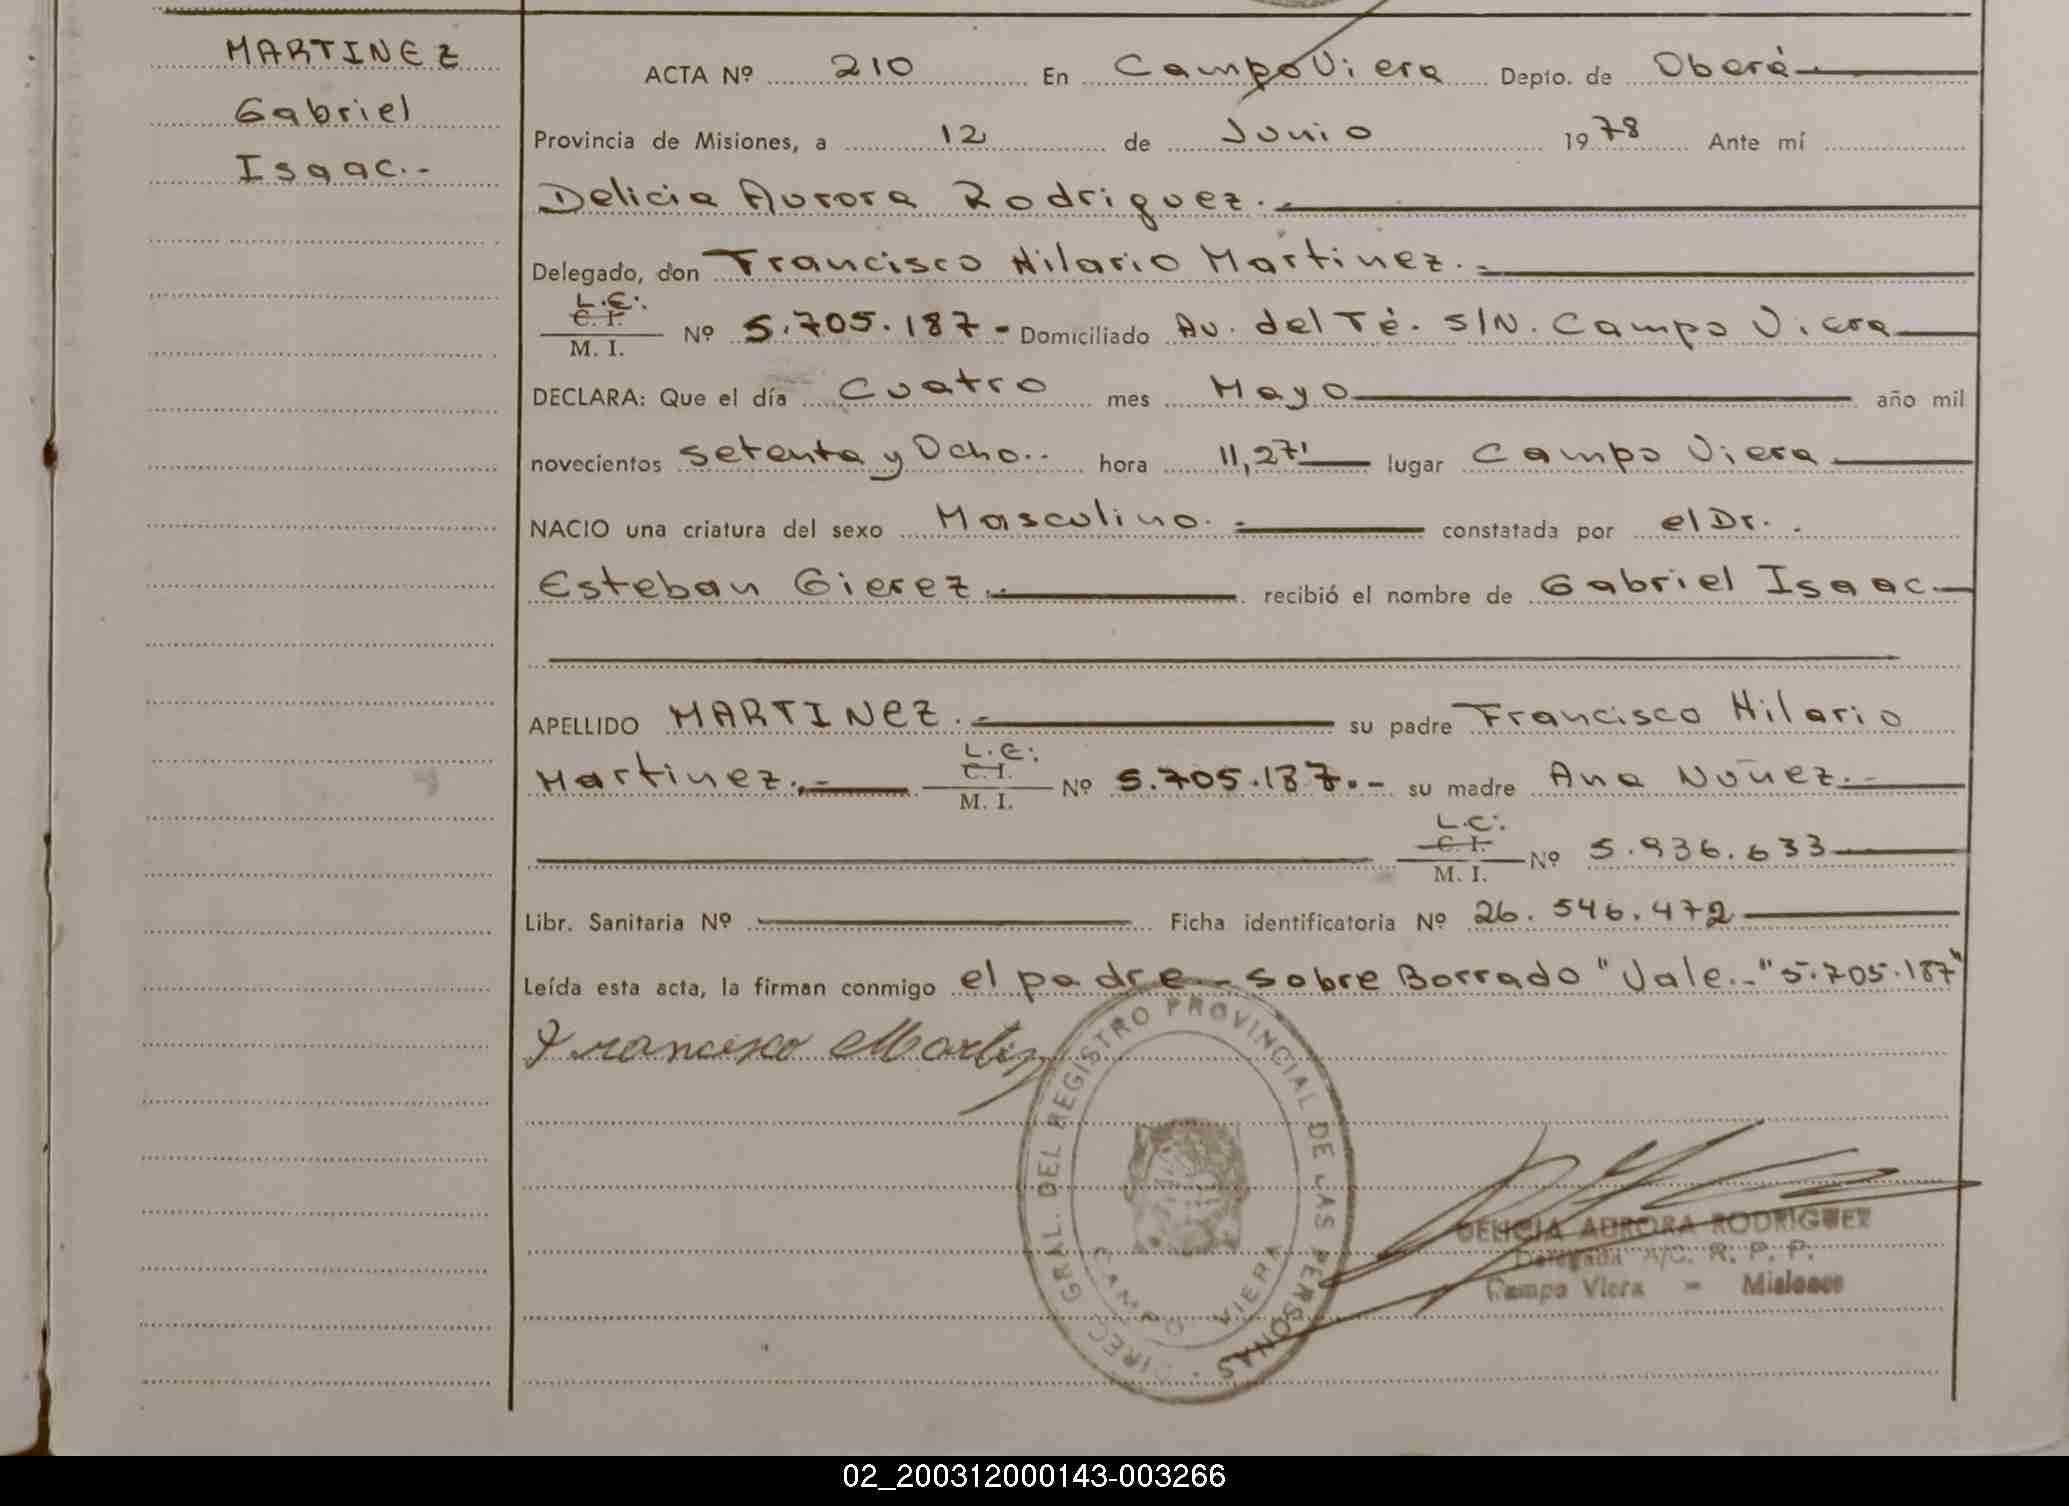 MARTINEZ
Gabriel
Isaac.-
ACTA Nº 210 En Campo Viera Depto. de Oberá
Provincia de Misiones, a 12 de Junio 1978 Ante mí
Delicia Aurora Rodriguez.-
Delegado, don Francisco Hilario Martinez.-
L.E:
C. I.
M. I. Nº 5.705.187- Domiciliado Av. del Té. S/N. Campo Viera
DECLARA: Que el día Cuatro mes Mayo año mil
novecientos setenta y Ocho.. hora 11,27' lugar Campo Viera
NACIO una criatura del sexo Masculino.- constatada por el Dr..
Esteban Gierez.- recibió el nombre de Gabriel Isaac.
APELLIDO MARTINEZ.- su padre Francisco Hilario
L.E:
C. I.
Martinez.- M. I. Nº 5.705.187.- su madre Ana Nuñez.-
L.C:
C. I.
M. I. Nº 5.936.633
Libr. Sanitaria Nº Ficha identificatoria Nº 26.546.472
Leída esta acta, la firman conmigo el padre - Sobre Borrado "Vale.-"5.705.187"
Francisco Martinez
DIREC. GRAL. DEL REGISTRO PROVINCIAL DE LAS PERSONAS
CAMPO VIERA
DELICIA AURORA RODRIGUEZ
Delegada A/C. R. P. P.
Campo Viera - Misiones
02_200312000143-003266